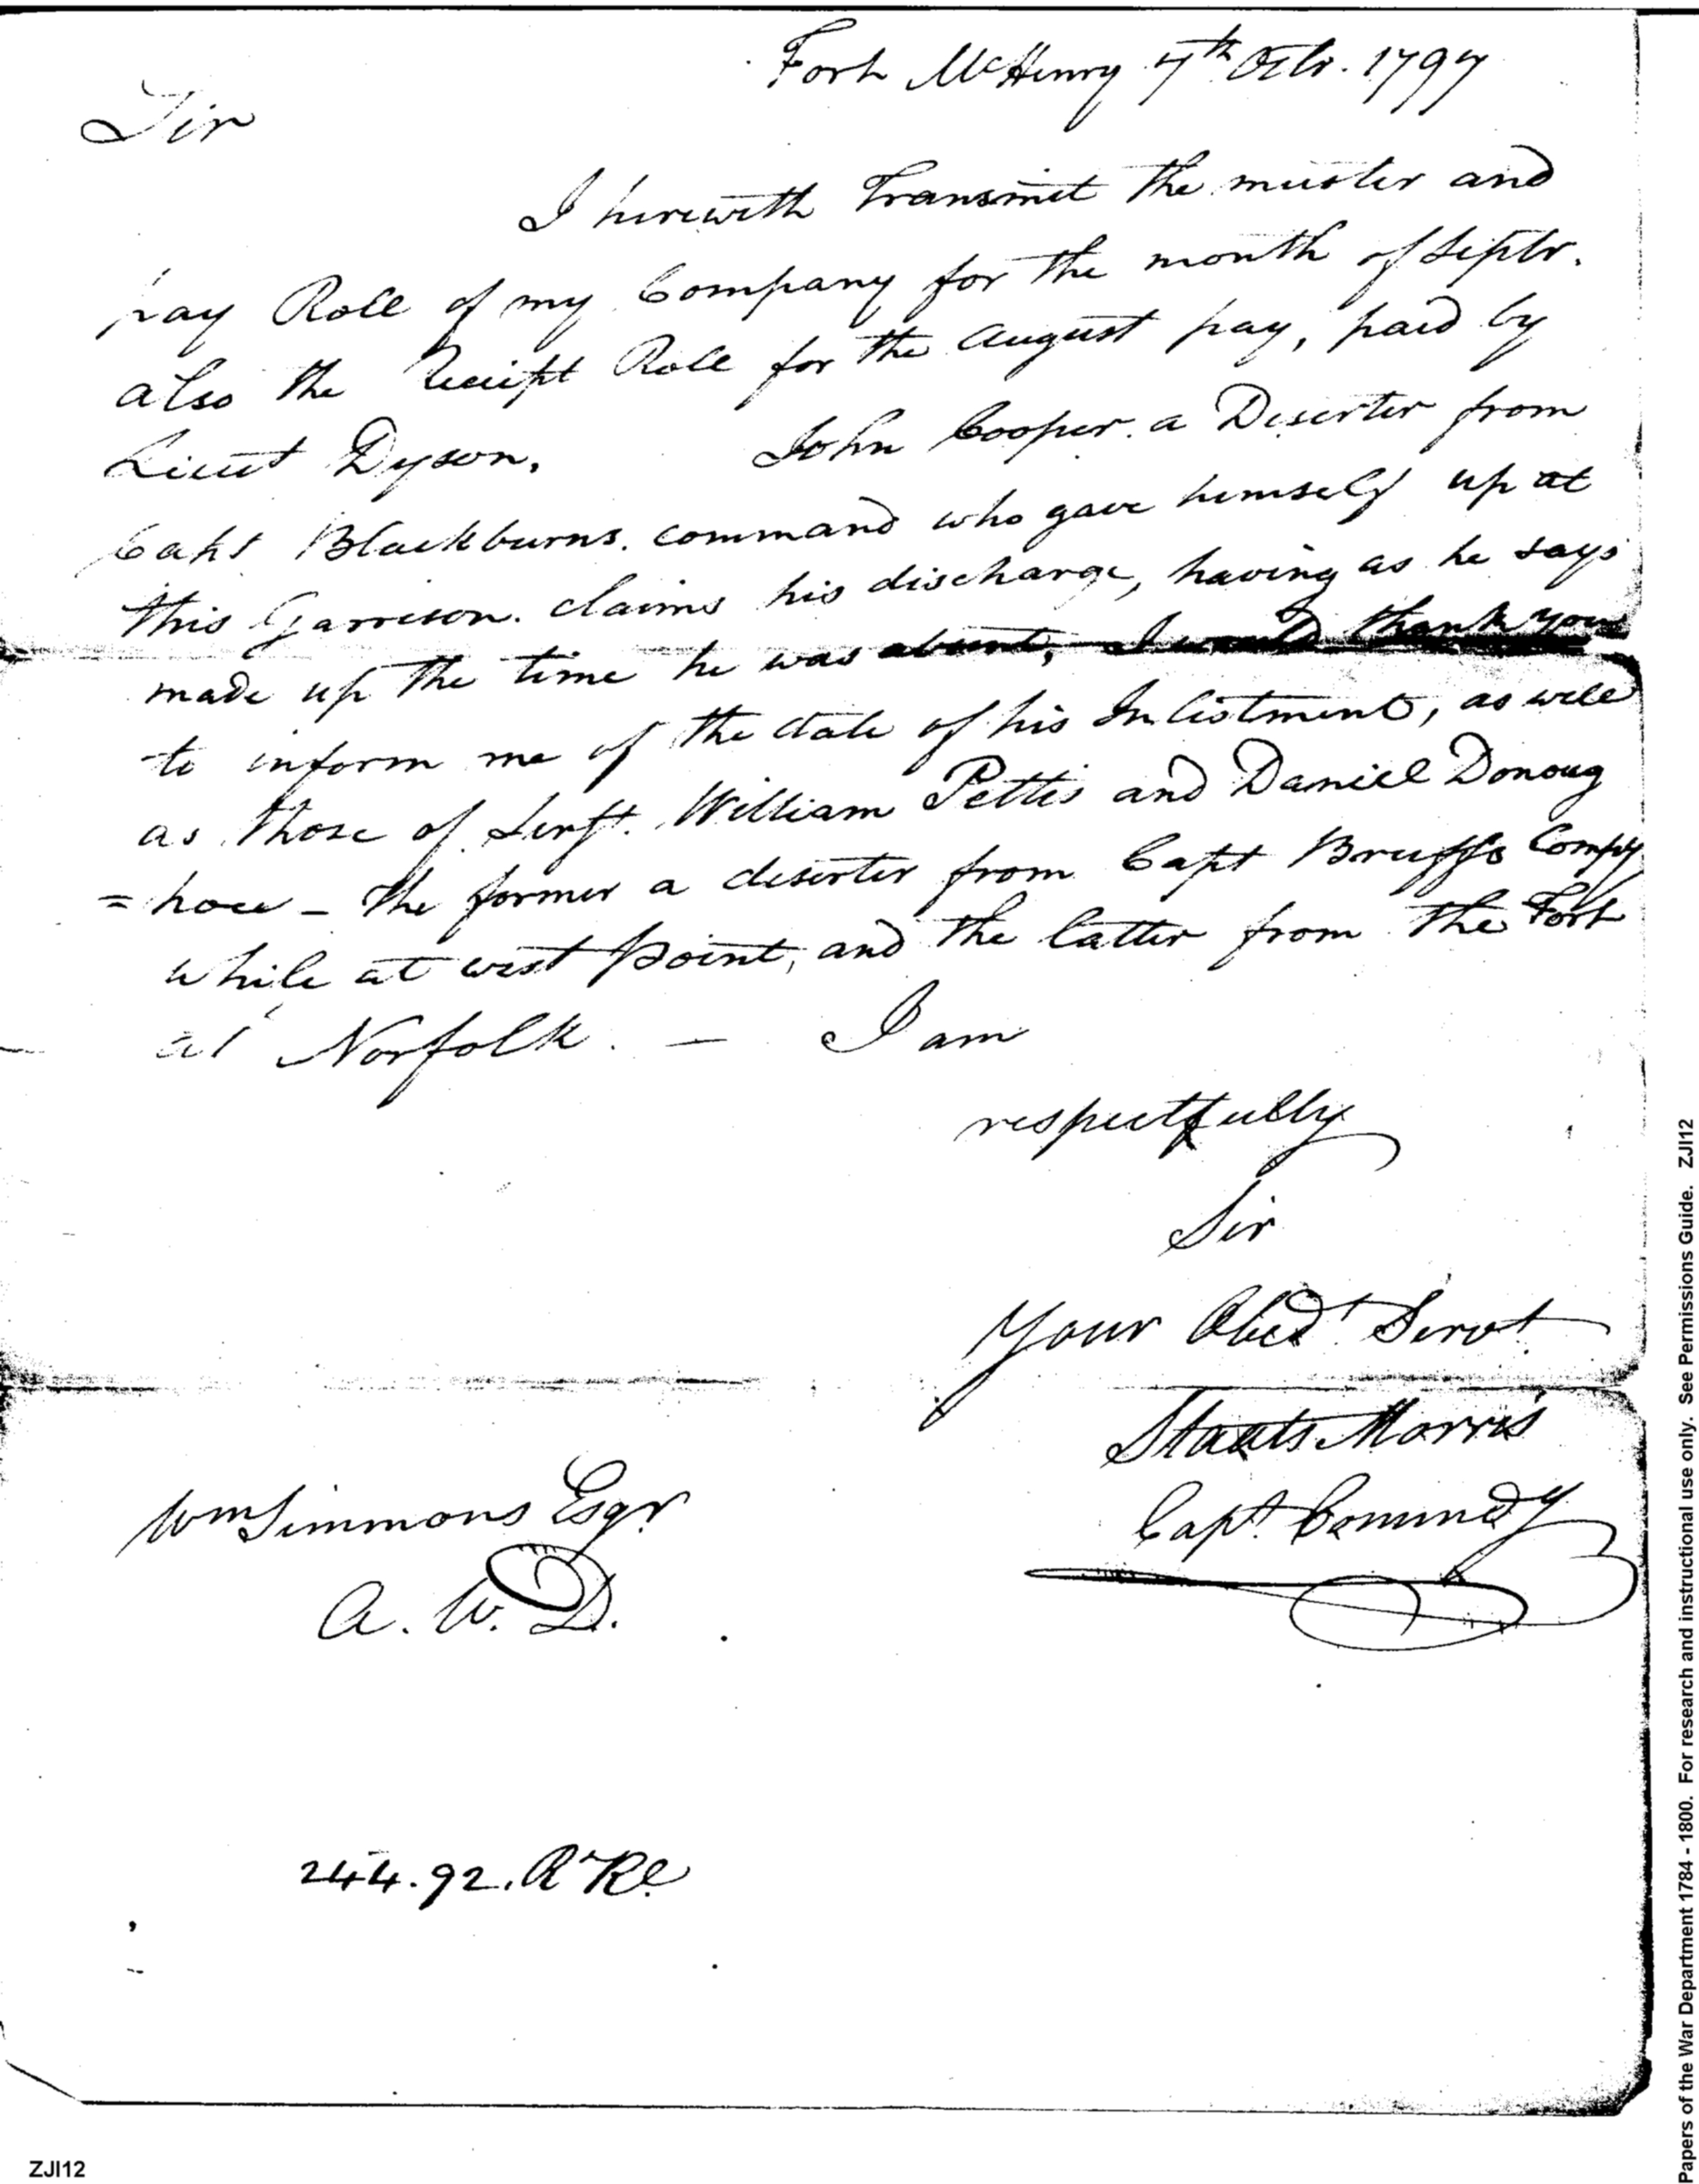 Fort McHenry 7th Octr. 1797
Sir
I herewith Transmit the muster and
pay Roll of my Company for the month of Septbr.
also the Receipt Roll for the August pay, paid by
Lieut Dyson. John Cooper. a Deserter from
Capt Blackburns. command who gave himself up at
this Garrison. claims his discharge, having as he says
made up the time he was absent, I would thank you
to inform me of the date of his Inlistment, as well
as those of Serjt. William Pettis and Daniel Donoug
= hoe - the former a deserter from Capt Bruffs Compy
while at west point, and the latter from the Fort
at Norfolk. - I am
respectfully
Sir
Your Obedt Servt
Staats Morris
Capt. Commdg
Wm Simmons Esqr
A. W. D.
244.92.
ZJI12
Papers of the War Department 1784 - 1800. For research and instructional use only. See Permissions Guide. ZJI12